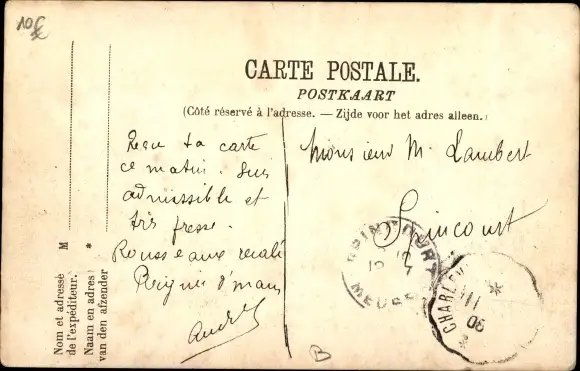 10€
CARTE POSTALE.
POSTKAART
(Côté réservé à l'adresse. — Zijde voor het adres alleen.)
Reçu ta carte
ce matin. Suis
admissible et
très pressé.
Rousseaux recalé
Poignée d'main
André
Monsieur M. Lambert
Spincourt
SPINCOURT
MEUSE
CHARLE
06
B
Nom et adressé M
de l'expéditeur.
Naam en adres *
van den afzender